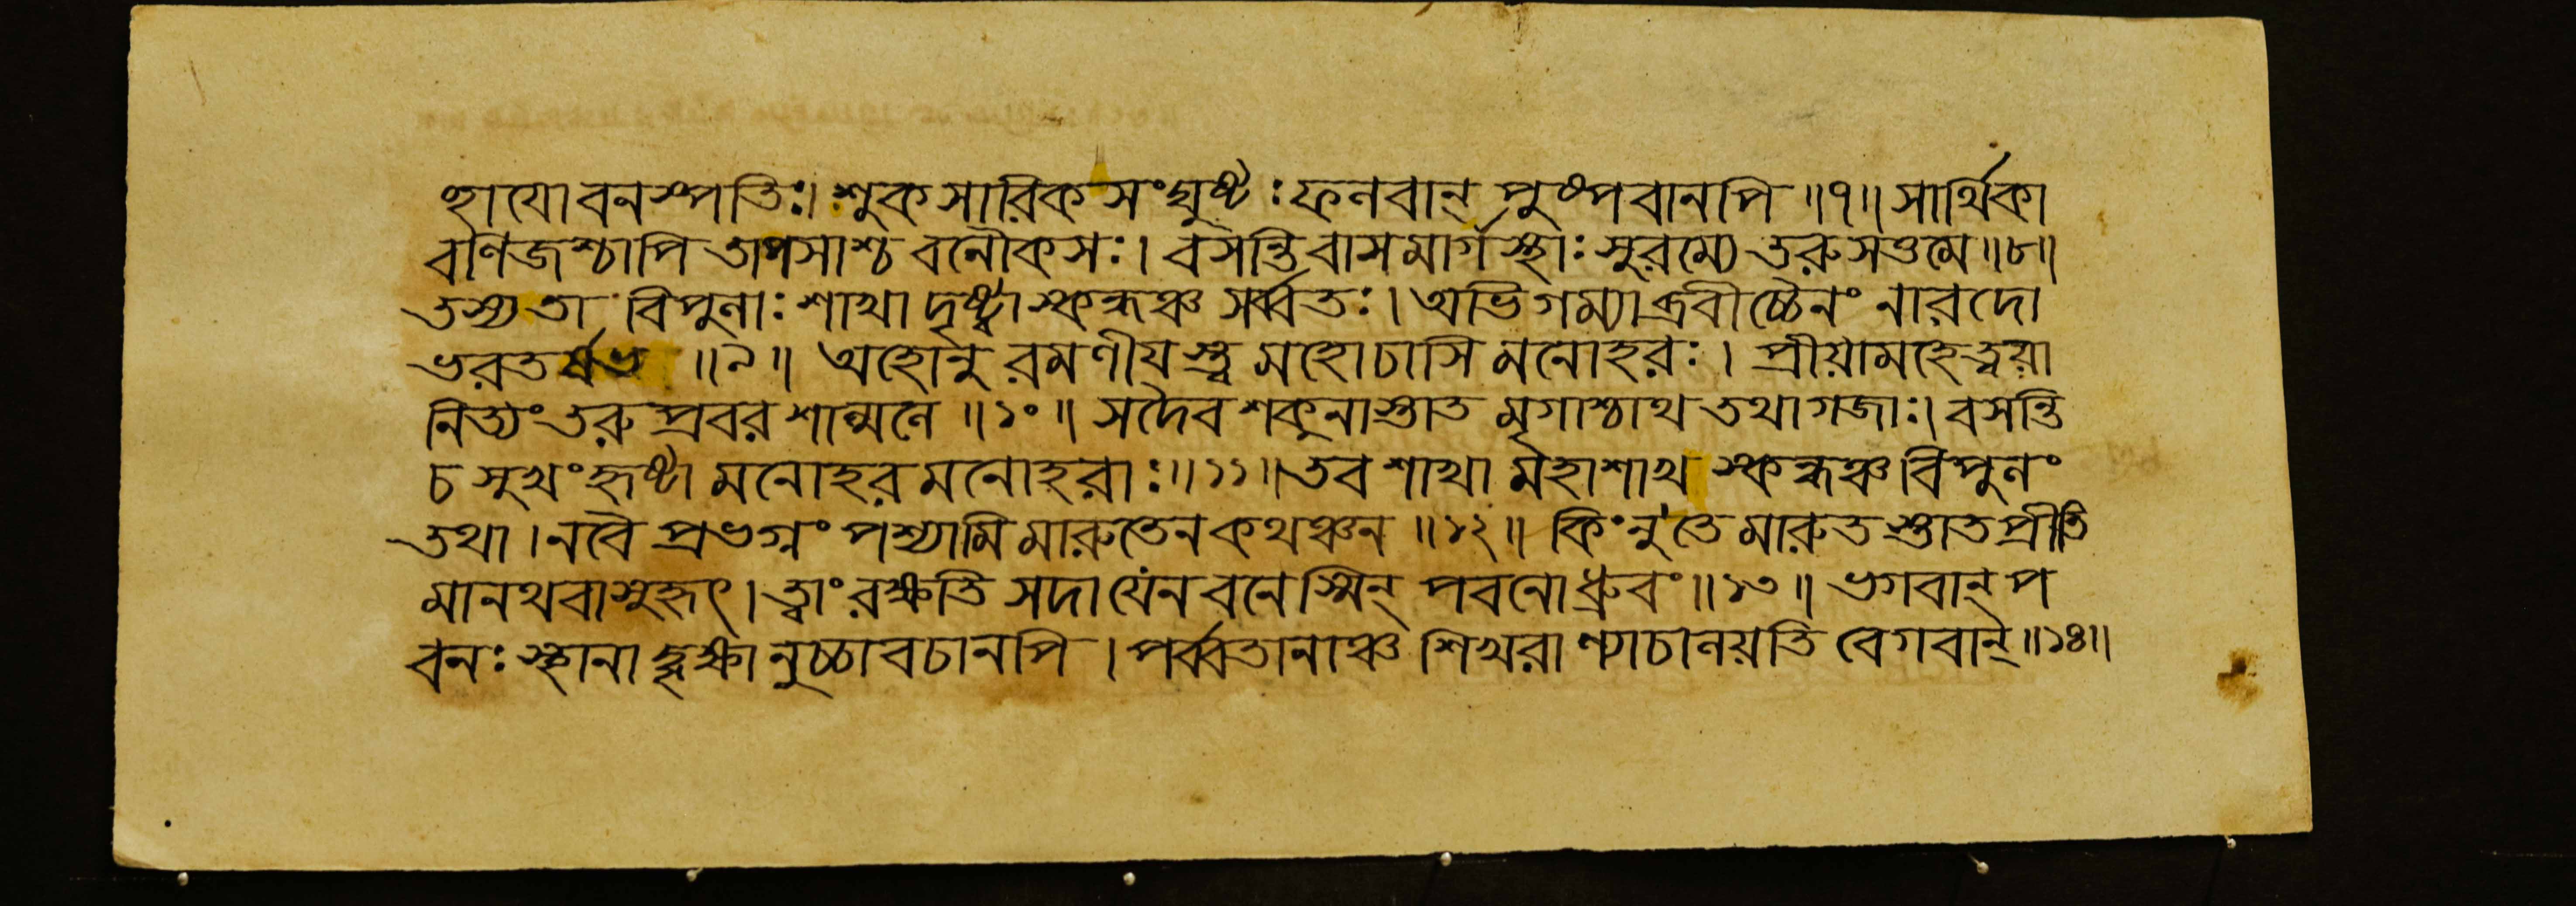 ণ্হাযো বনস্পতিঃ। শুকসারিকসংঘুষ্টঃ ফলবান্ পুষ্পবানপি ॥৭॥ সার্থিকা
বণিজশ্চাপি তাপসাশ্চ বনৌকসঃ। বসন্তি বাসমার্গস্থাঃ সুরম্যে তরুসত্তমে ॥৮॥
তস্য তা বিপুলাঃ শাখা দৃষ্ট্বা স্কন্ধঞ্চ সর্ব্বতঃ। অভিগম্যাব্রবীচ্চৈনং নারদো
ভরতর্ষভ ॥৯॥ অহো নু রমণীযস্ত্ব মহো চাসি মনোহরঃ। প্রীয়ামহে ত্বয়া
নিত্যং তরুপ্রবর শাল্মলে ॥১০॥ সদৈব শকুনাস্তাত মৃগাশ্চাথ তথা গজাঃ। বসন্তি
চ সুখং হৃষ্টা মনোহর মনোহরাঃ ॥১১॥ তব শাখা মহাশাখ স্কন্ধঞ্চ বিপুলং
তথা। ন বৈ প্রভগ্নং পশ্যামি মারুতেন কথঞ্চন ॥১২॥ কিং নু তে মারুতস্তাত প্রীতি
মানথবা সুহৃৎ। ত্বাং রক্ষতি সদা যেন বনেস্মিন্ পবনো ধ্রুবং ॥১৩॥ ভগবান্ প
বনঃ স্থানাদ্বৃক্ষানুচ্চাবচানপি। পর্ব্বতানাঞ্চ শিখরাণ্যাচালয়তি বেগবান্ ॥১৪॥